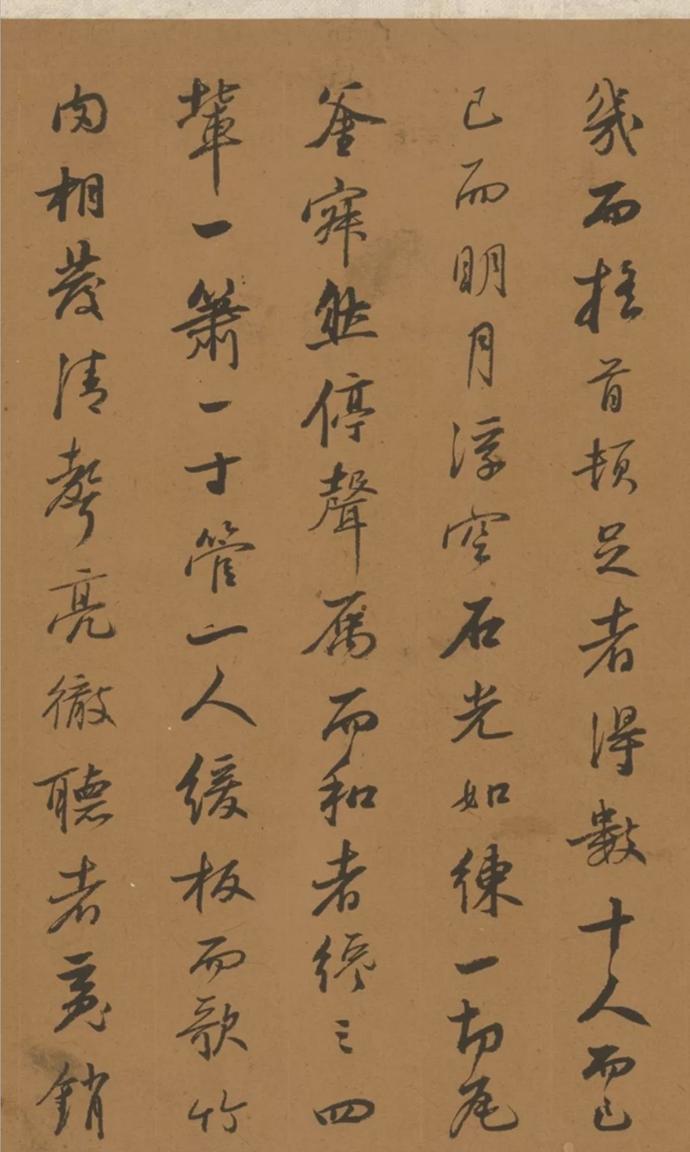 幾而搖首頓足者得數十人而已
已而明月浮空石光如練一切瓦
釜寂然停聲屬而和者纔三四
輩一簫一寸管一人緩板而歌竹
肉相發清聲亮徹聽者寬銷